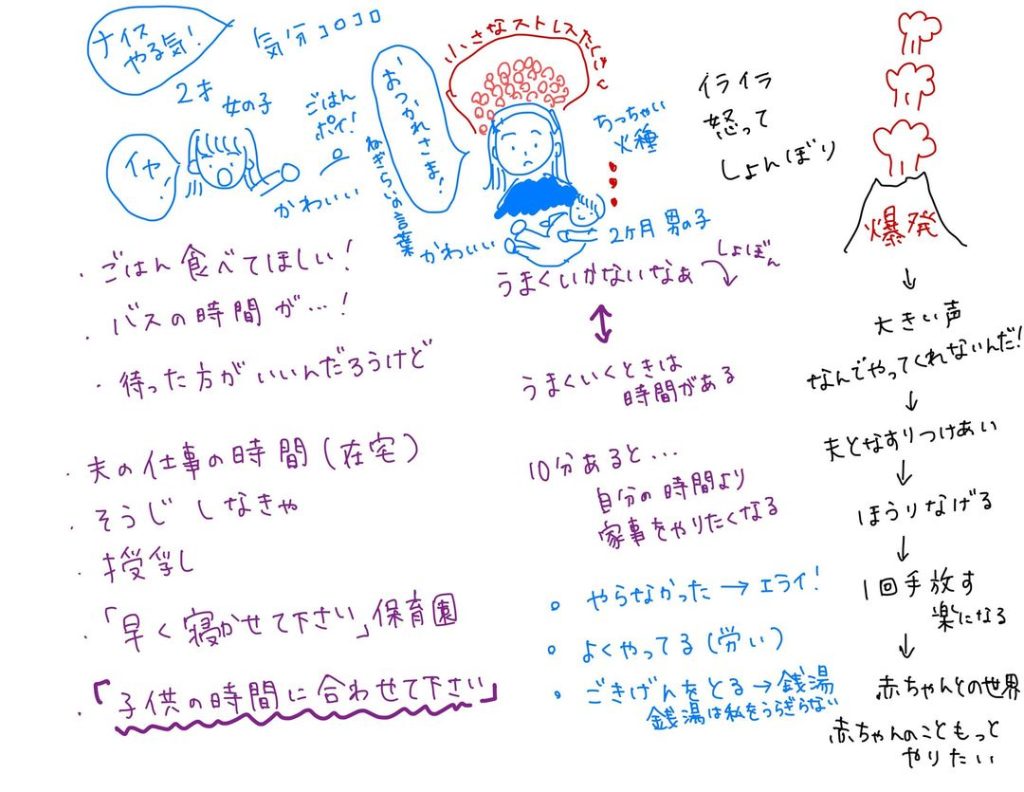 ナイス
やる気!
気分コロコロ
2才 女の子
イヤ!
ごはん
ポイ!
かわいい
おつかれさま!
ねぎらいの言葉
小さなストレスたくさん
ちっちゃい
火種
かわいい
2ヶ月 男の子
イライラ
怒って
しょんぼり
爆発
・ごはん食べてほしい!
・バスの時間が…!
・待った方がいいんだろうけど
・夫の仕事の時間(在宅)
・そうじ しなきゃ
・授乳し
・「早く寝かせて下さい」保育園
・「子供の時間に合わせて下さい」
うまくいかないなぁ
しょぼん
うまくいくときは
時間がある
10分あると…
自分の時間より
家事をやりたくなる
○ やらなかった→エライ!
○ よくやってる(労い)
○ ごきげんをとる→銭湯
銭湯は私をうらぎらない
↓
大きい声
なんでやってくれないんだ!
↓
夫となすりつけあい
↓
ほうりなげる
↓
1回手放す
楽になる
↓
赤ちゃんとの世界
赤ちゃんのこともっと
やりたい